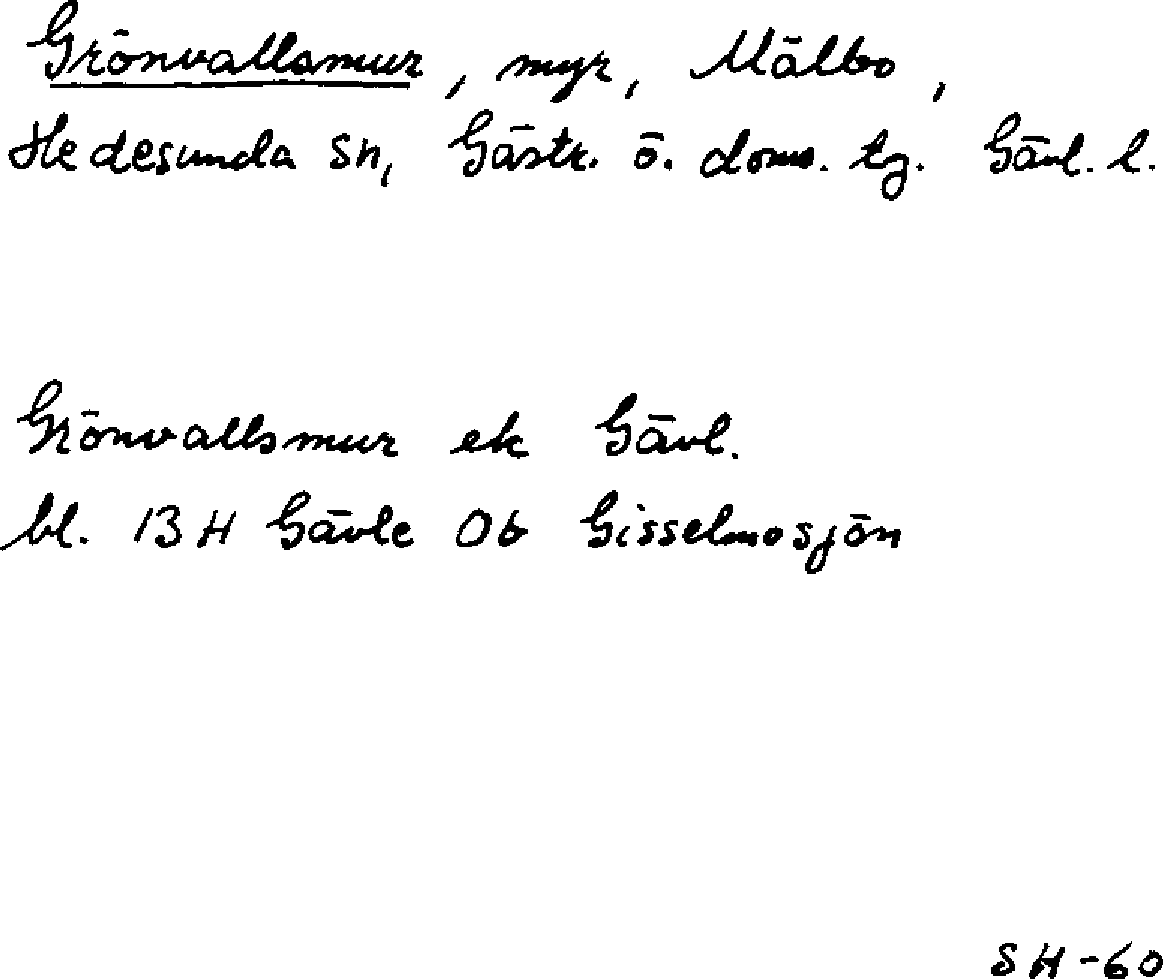 Grönvallsmur, myr, Mälbo,
Hedesunda sn, Gästr. ö. doms. tg. Gävl. l.
Grönvallsmur ek Gävl.
bl. 13 H Gävle 0b Gisselmosjön
SH-60